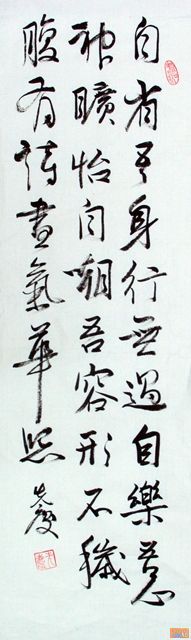 自省吾身行無過自樂意
神曠怡自嘲吾容形不穢
腹有詩書氣華照